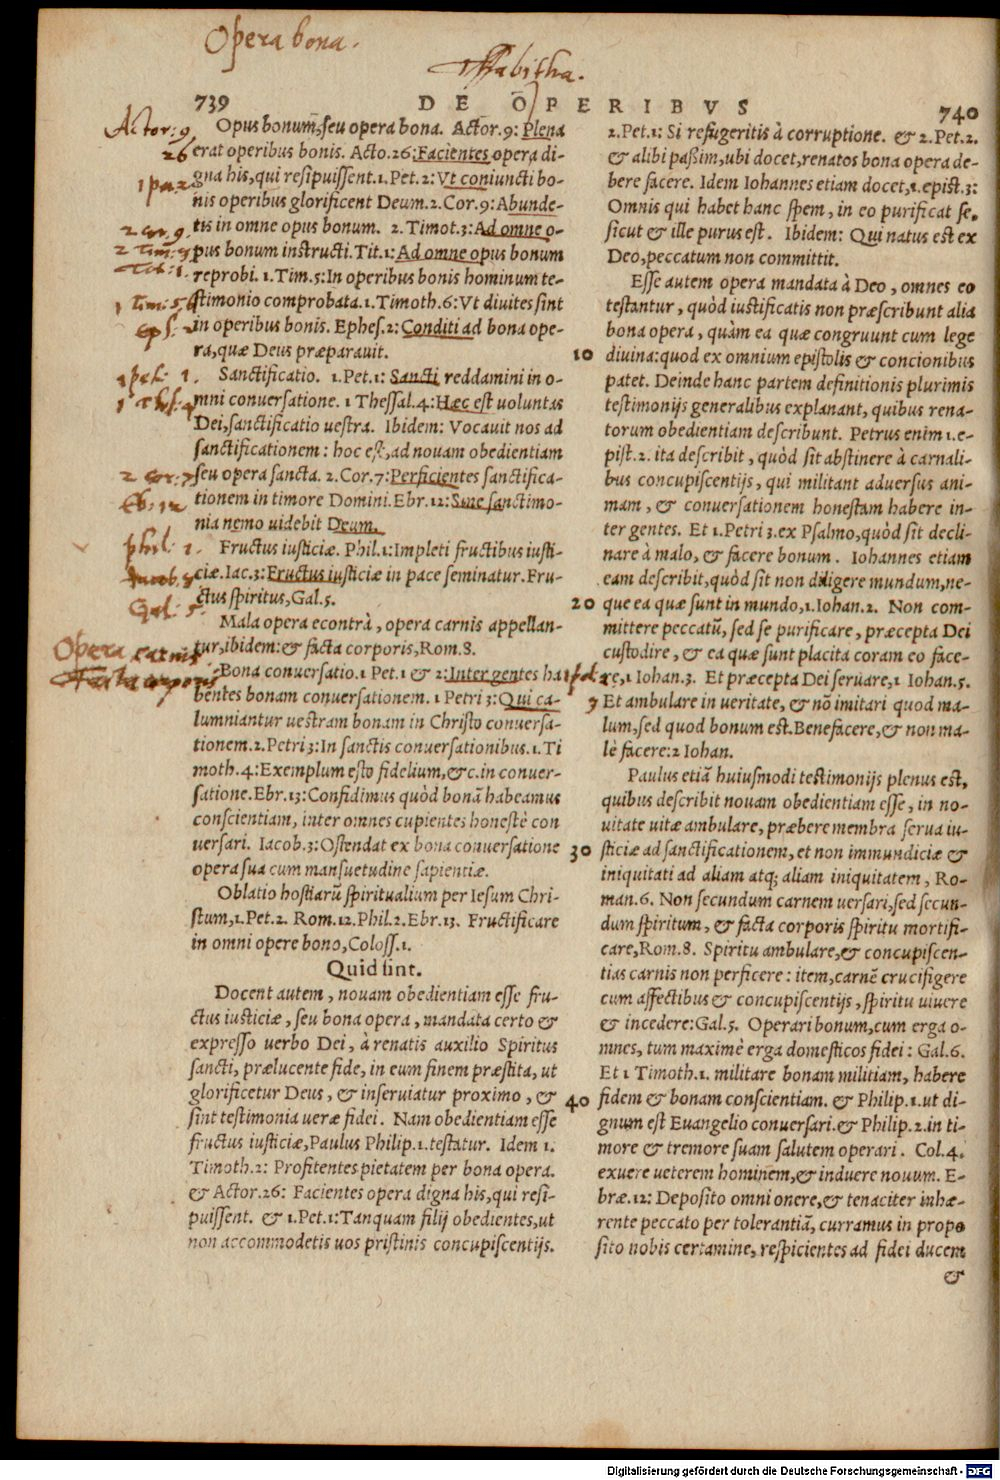 Opera bona.
Tabitha.
739
DE OPERIBVS
740
Actor: 9
26
2 Cor. 9
1 Tim: 5. 6
Eps: 2
1 pet: 1.
2 Cor: 7
Eb: 12
phil: 1.
Jacob. 3
Gal: 5.
Opera carnis
Facta corporis
Opus bonum, seu opera bona. Actor. 9: Plena
erat operibus bonis. Acto. 26: Facientes opera di-
gna his, qui resipuissent. 1. Pet. 2: Vt coniuncti bo-
nis operibus glorificent Deum. 2. Cor. 9: Abunde-
tis in omne opus bonum. 2. Timot. 3: Ad omne o-
pus bonum instructi. Tit. 1: Ad omne opus bonum
reprobi. 1. Tim. 5: In operibus bonis hominum te-
stimonio comprobata. 1. Timoth. 6: Vt diuites sint
in operibus bonis. Ephes. 2: Conditi ad bona ope-
ra, quæ Deus præparauit.
Sanctificatio. 1. Pet. 1: Sancti reddamini in o-
mni conuersatione. 1 Thessal. 4: Hæc est voluntas
Dei, sanctificatio uestra. Ibidem: Vocauit nos ad
sanctificationem: hoc est, ad nouam obedientiam
seu opera sancta. 2. Cor. 7: Perficientes sanctifica-
tionem in timore Domini. Ebr. 12: Sine sanctimo-
nia nemo uidebit Deum.
Fructus iusticiæ. Phil. 1: Impleti fructibus iusti-
ciæ. Iac. 3: Fructus iusticiæ in pace seminatur. Fru-
ctus spiritus, Gal. 5.
Mala opera econtrà, opera carnis appellan-
tur, ibidem: & facta corporis, Rom. 8.
Bona conuersatio. 1 Pet. 1 & 2: Inter gentes ha
bentes bonam conuersationem. 1 Petri 3: Qui ca-
lumniantur uestram bonam in Christo conuersa-
tionem. 2. Petri 3: In sanctis conuersationibus. 1. Ti
moth. 4: Exemplum esto fidelium, &c. in conuer-
satione. Ebr. 13: Confidimus quòd bonā habeamus
conscientiam, inter omnes cupientes honestè con
uersari. Iacob. 3: Ostendat ex bona conuersatione
opera sua cum mansuetudine sapientiæ.
Oblatio hostiarū spiritualium per Iesum Chri-
stum, 1. Pet. 2. Rom. 12. Phil. 2. Ebr. 13. Fructificare
in omni opere bono, Coloss. 1.
Quid sint.
Docent autem, nouam obedientiam esse fru-
ctus iusticiæ, seu bona opera, mandata certo &
expresso uerbo Dei, à renatis auxilio Spiritus
sancti, prælucente fide, in eum finem præstita, ut
glorificetur Deus, & inseruiatur proximo, &
sint testimonia ueræ fidei. Nam obedientiam esse
fructus iusticiæ, Paulus Philip. 1. testatur. Idem 1.
Timoth. 2: Profitentes pietatem per bona opera.
& Actor. 26: Facientes opera digna his, qui resi-
puissent. & 1. Pet. 1: Tanquam filij obedientes, ut
non accommodetis uos pristinis concupiscentijs.
10
20
30
40
2. Pet. 1: Si refugeritis à corruptione. & 2. Pet. 2.
& alibi passim, ubi docet, renatos bona opera de-
bere facere. Idem Iohannes etiam docet, 1. epist. 3:
Omnis qui habet hanc spem, in eo purificat se,
sicut & ille purus est. Ibidem: Qui natus est ex
Deo, peccatum non committit.
Esse autem opera mandata à Deo, omnes eo
testantur, quòd iustificatis non præscribunt alia
bona opera, quàm ea quæ congruunt cum lege
diuina: quod ex omnium epistolis & concionibus
patet. Deinde hanc partem definitionis plurimis
testimonijs generalibus explanant, quibus rena-
torum obedientiam describunt. Petrus enim 1. e-
pist. 2. ita describit, quòd sit abstinere à carnali-
bus concupiscentijs, qui militant aduersus ani-
mam, & conuersationem honestam habere in-
ter gentes. Et 1. Petri 3. ex Psalmo, quòd sit decli-
nare à malo, & facere bonum. Iohannes etiam
eam describit, quòd sit non diligere mundum, ne-
que ea quæ sunt in mundo, 1. Iohan. 2. Non com-
mittere peccatū, sed se purificare, præcepta Dei
custodire, & ea quæ sunt placita coram eo face-
re, 1 Iohan. 3. Et præcepta Dei seruare, 1 Iohan. 5.
Et ambulare in ueritate, & nō imitari quod ma-
lum, sed quod bonum est. Benefacere, & non ma-
lè facere: 2 Iohan.
Paulus etiā huiusmodi testimonijs plenus est,
quibus describit nouam obedientiam esse, in no-
uitate uitæ ambulare, præbere membra serua iu-
sticiæ ad sanctificationem, et non immundiciæ &
iniquitati ad aliam atq; aliam iniquitatem, Ro-
man. 6. Non secundum carnem uersari, sed secun-
dum spiritum, & facta corporis spiritu mortifi-
care, Rom. 8. Spiritu ambulare, & concupiscen-
tias carnis non perficere: item, carnē crucifigere
cum affectibus & concupiscentijs, spiritu uiuere
& incedere: Gal. 5. Operari bonum, cum erga o-
mnes, tum maximè erga domesticos fidei: Gal. 6.
Et 1 Timoth. 1. militare bonam militiam, habere
fidem & bonam conscientiam. & Philip. 1. ut di-
gnum est Euangelio conuersari. & Philip. 2. in ti-
more & tremore suam salutem operari. Col. 4.
exuere ueterem hominem, & induere nouum. E-
bræ. 12: Deposito omni onere, & tenaciter inhæ-
rente peccato per tolerantiā, curramus in propo
sito nobis certamine, respicientes ad fidei ducem
&
Digitalisierung gefördert durch die Deutsche Forschungsgemeinschaft - DFG